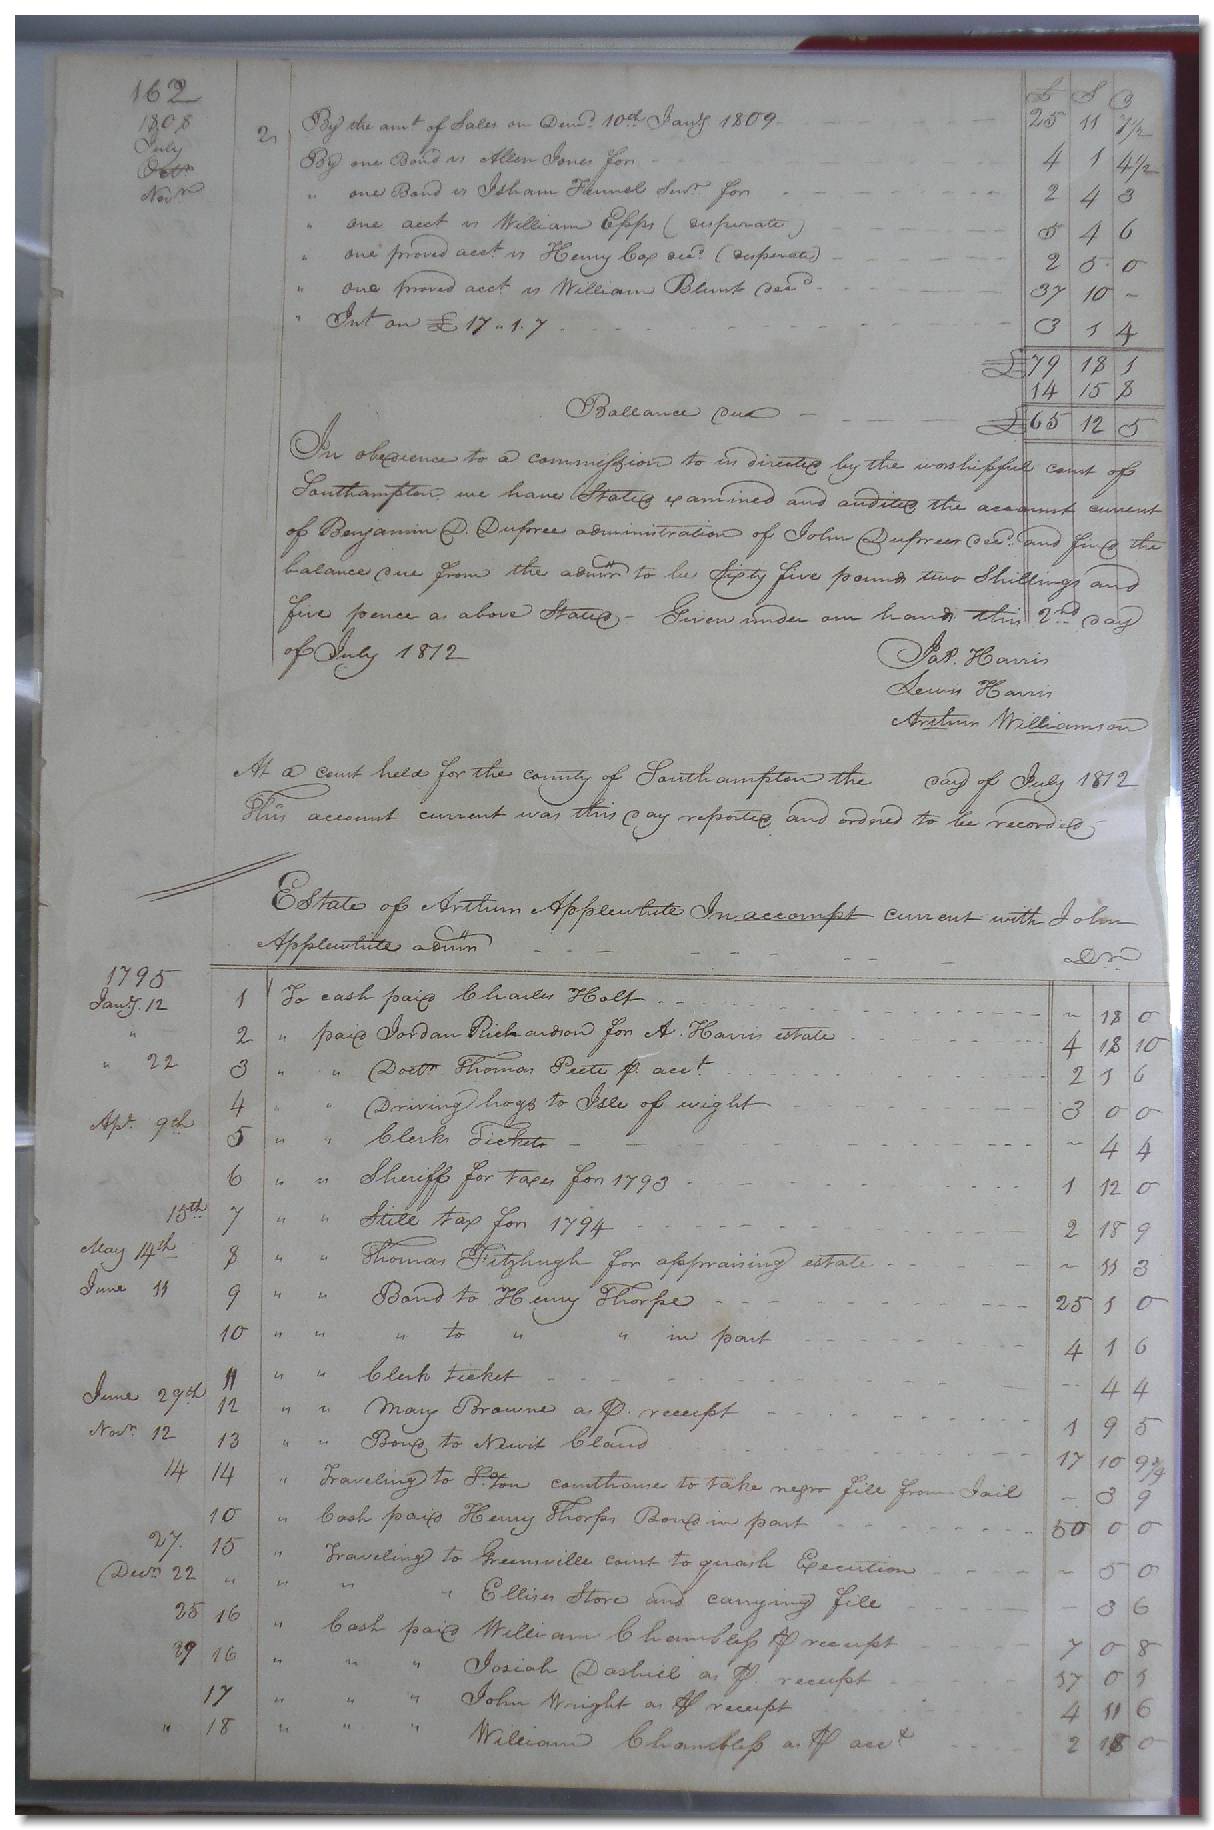 162
£ S D
1808 2 By the amt of Sales on Demd. 10th Jany 1809 25 11 7½
July By one Bond vs Allen Jones for 4 1 4½
Octr
Novr " one Bond vs Isham Fennel Surt for 2 4 3
" one acct vs William Epps (desperate) 5 4 6
" one proved acct. vs Henry Cox decd (desperate) 2 5 0
" one proved acct vs William Blunt decd. 37 10 -
" Int on £ 17 " 1. 7 3 1 4
£ 79 18 1
14 15 8
Ballance due £ 65 12 5
In obedience to a commission to us directed by the worshipful court of
Southampton we have Stated examined and audited the account current
of Benjamin D. Dupree administration of John Duprees decd. and find the
balance due from the admr to be Sixty five pounds two Shillings and
five pence as above Stated - Given under our hands this 2nd day
of July 1812
Jas. Harris
Lewis Harris
Arthur Williamson
At a court held for the county of Southampton the day of July 1812
This account current was this day reported and ordred to be recorded
Estate of Arthur Applewhite In accompt current with John
Applewhite admr Dr
1795
Jany. 12 1 To cash paid Charles Holt ~ 18 0
" 2 " paid Jordan Richardson for A. Harris estate 4 18 10
" 22 3 " " Doctr Thomas Peete p. acct. 2 1 6
4 " " Driving hogs to Isle of wight 3 0 0
Apr. 9th 5 " " Clerks Tickets ~ 4 4
6 " " Sheriff for taxes for 1793 1 12 0
15th 7 " " Still tax for 1794 2 18 9
May 14th 8 " " Thomas Fitzhugh for appraising estate ~ 11 3
June 11 9 " " Bond to Henry Thorpe 25 1 0
10 " " " to " " in part 4 1 6
11 " " Clerk ticket 4 4
June 29th 12 " " Mary Browne as p. receipt 1 9 5
Novr. 12 13 " " Bond to Newit Claud 17 10 9¾
14 14 " Traveling to S.ton courthouse to take negro file from Jail ~ 3 9
10 " Cash paid Henry Thorps Bond in part 50 0 0
27. 15 " Traveling to Greensville court to quash Execution ~ 5 0
Decr 22 " " " " Ellises Store and carrying file - 3 6
25 16 " Cash paid William Chambless p receipt 7 0 8
29 16 " " " Josiah Dashiel as p. receipt 57 0 1
17 " " " John Wright as p receipt 4 11 6
" 18 " " " William Chambless as p acct 2 18 0